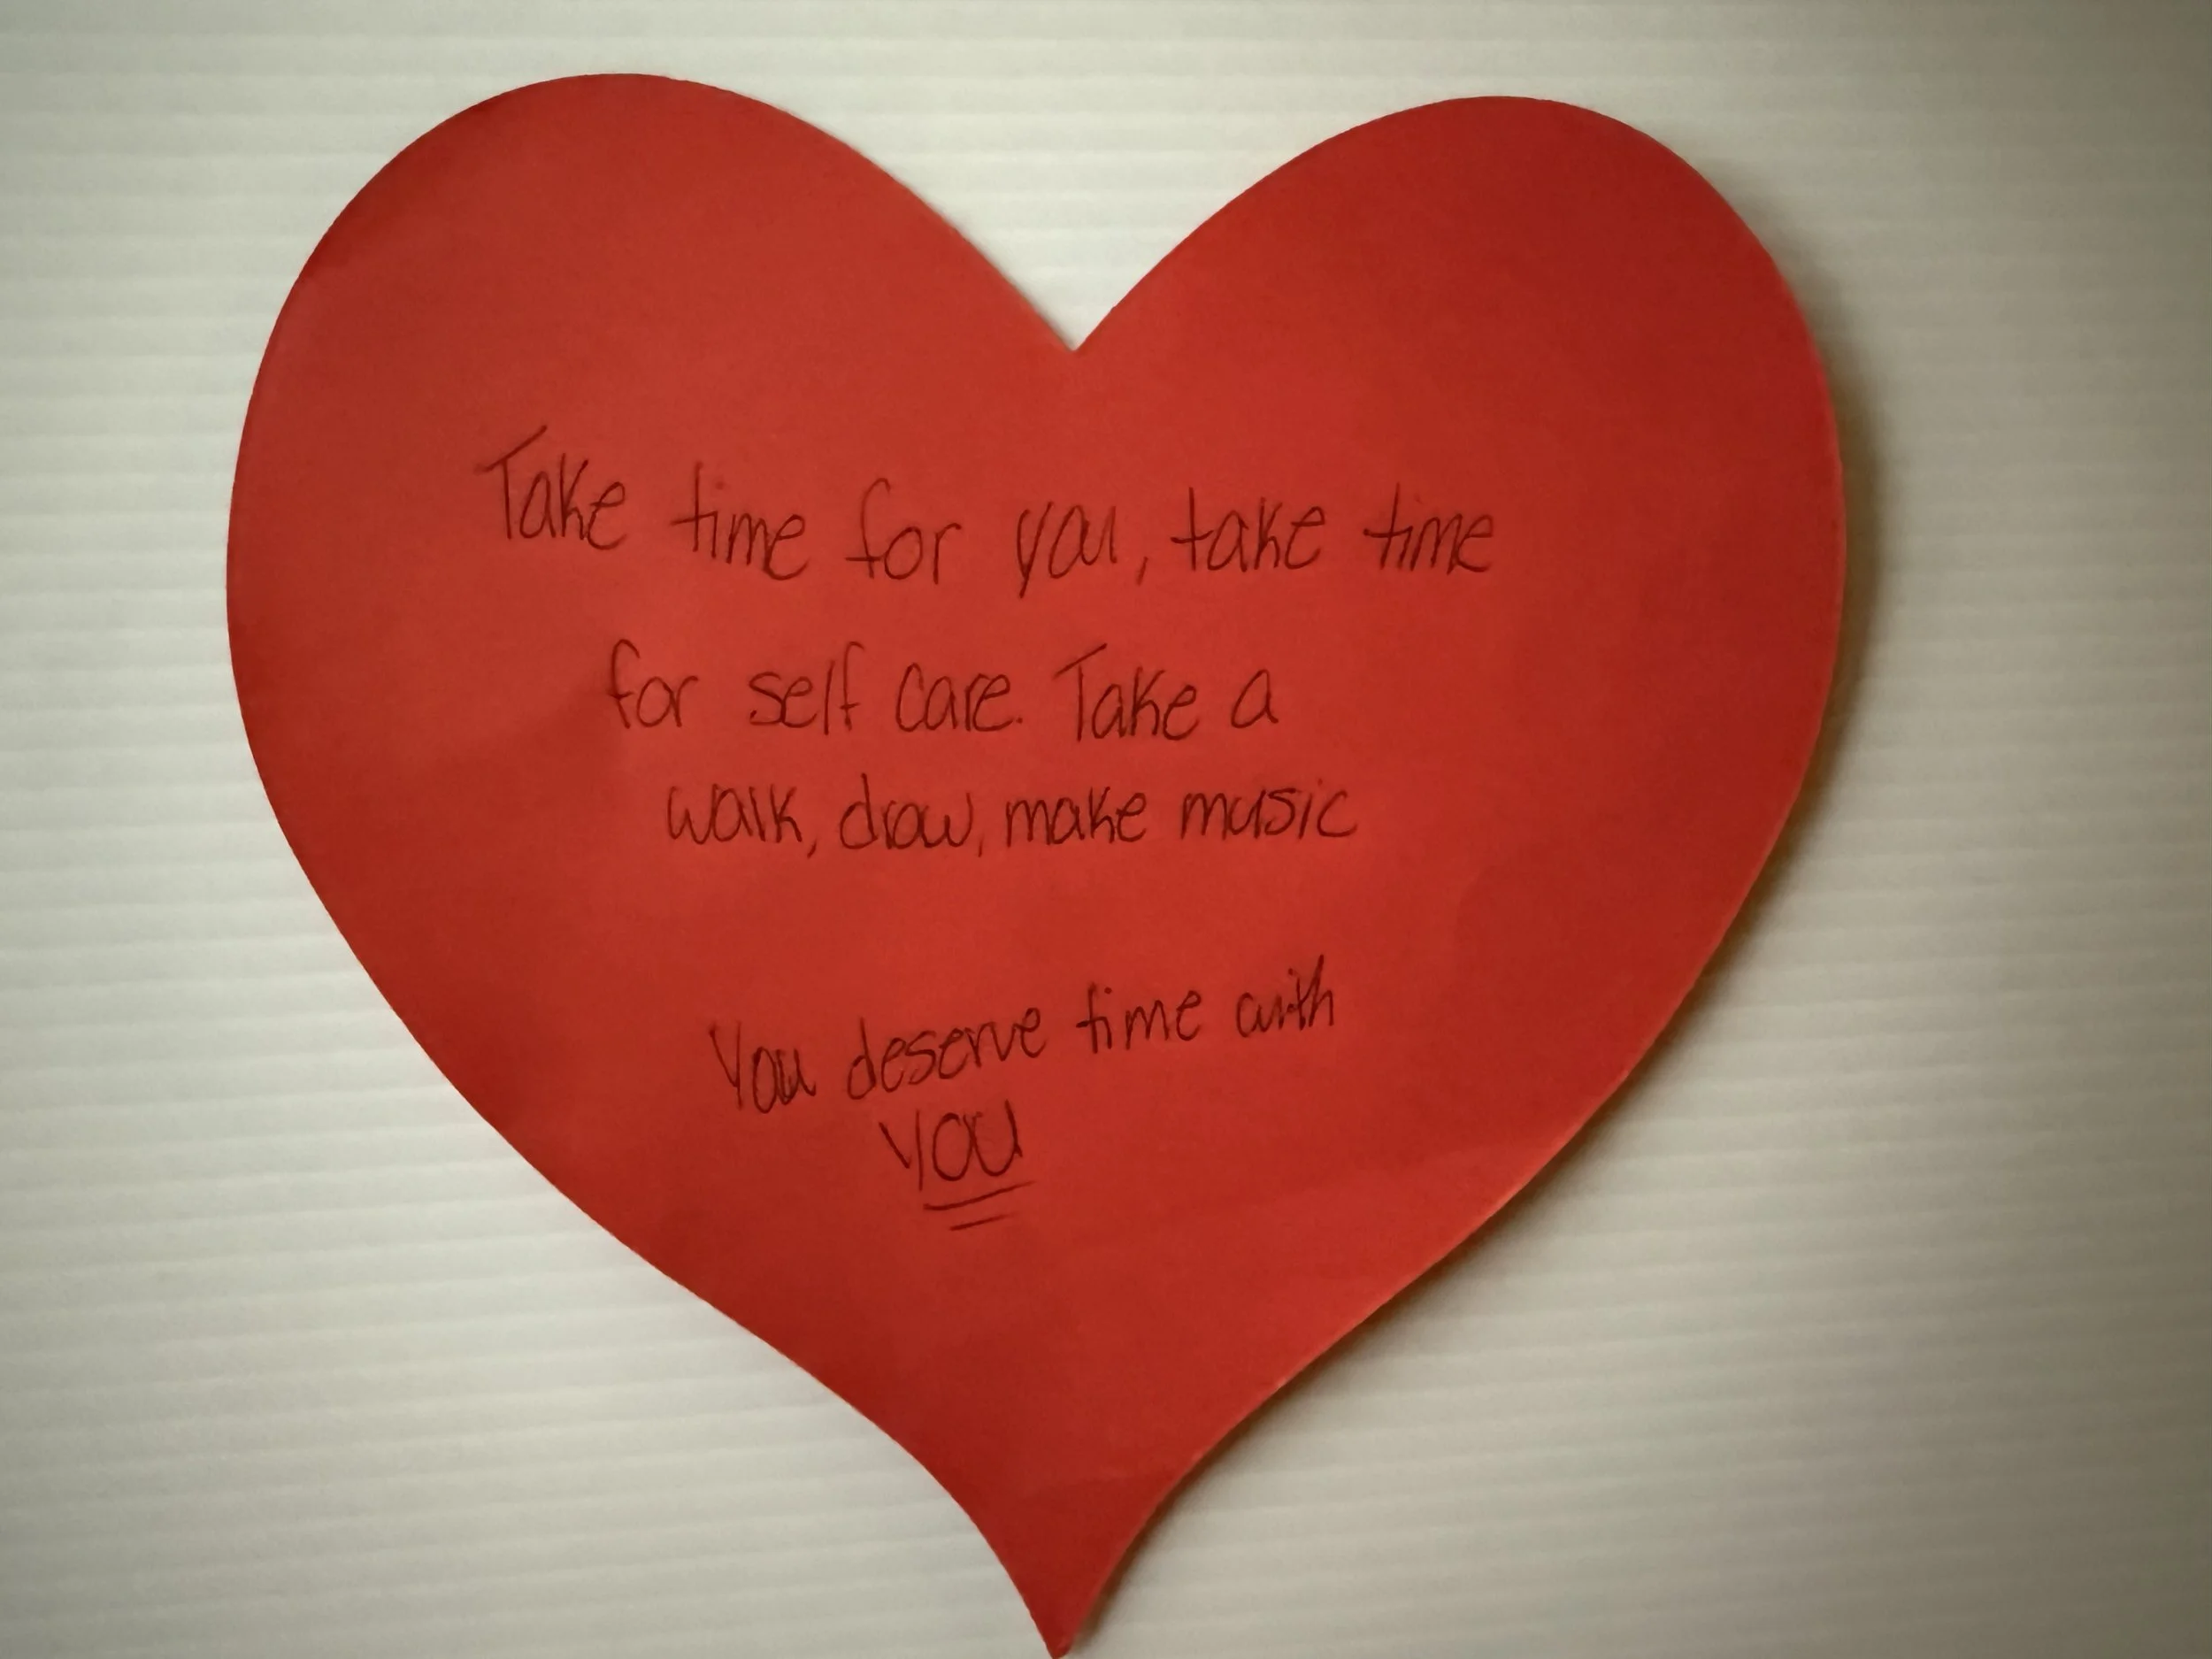 Take time for you, take time
for self care. Take a
walk, draw, make music
You deserve time with
YOU